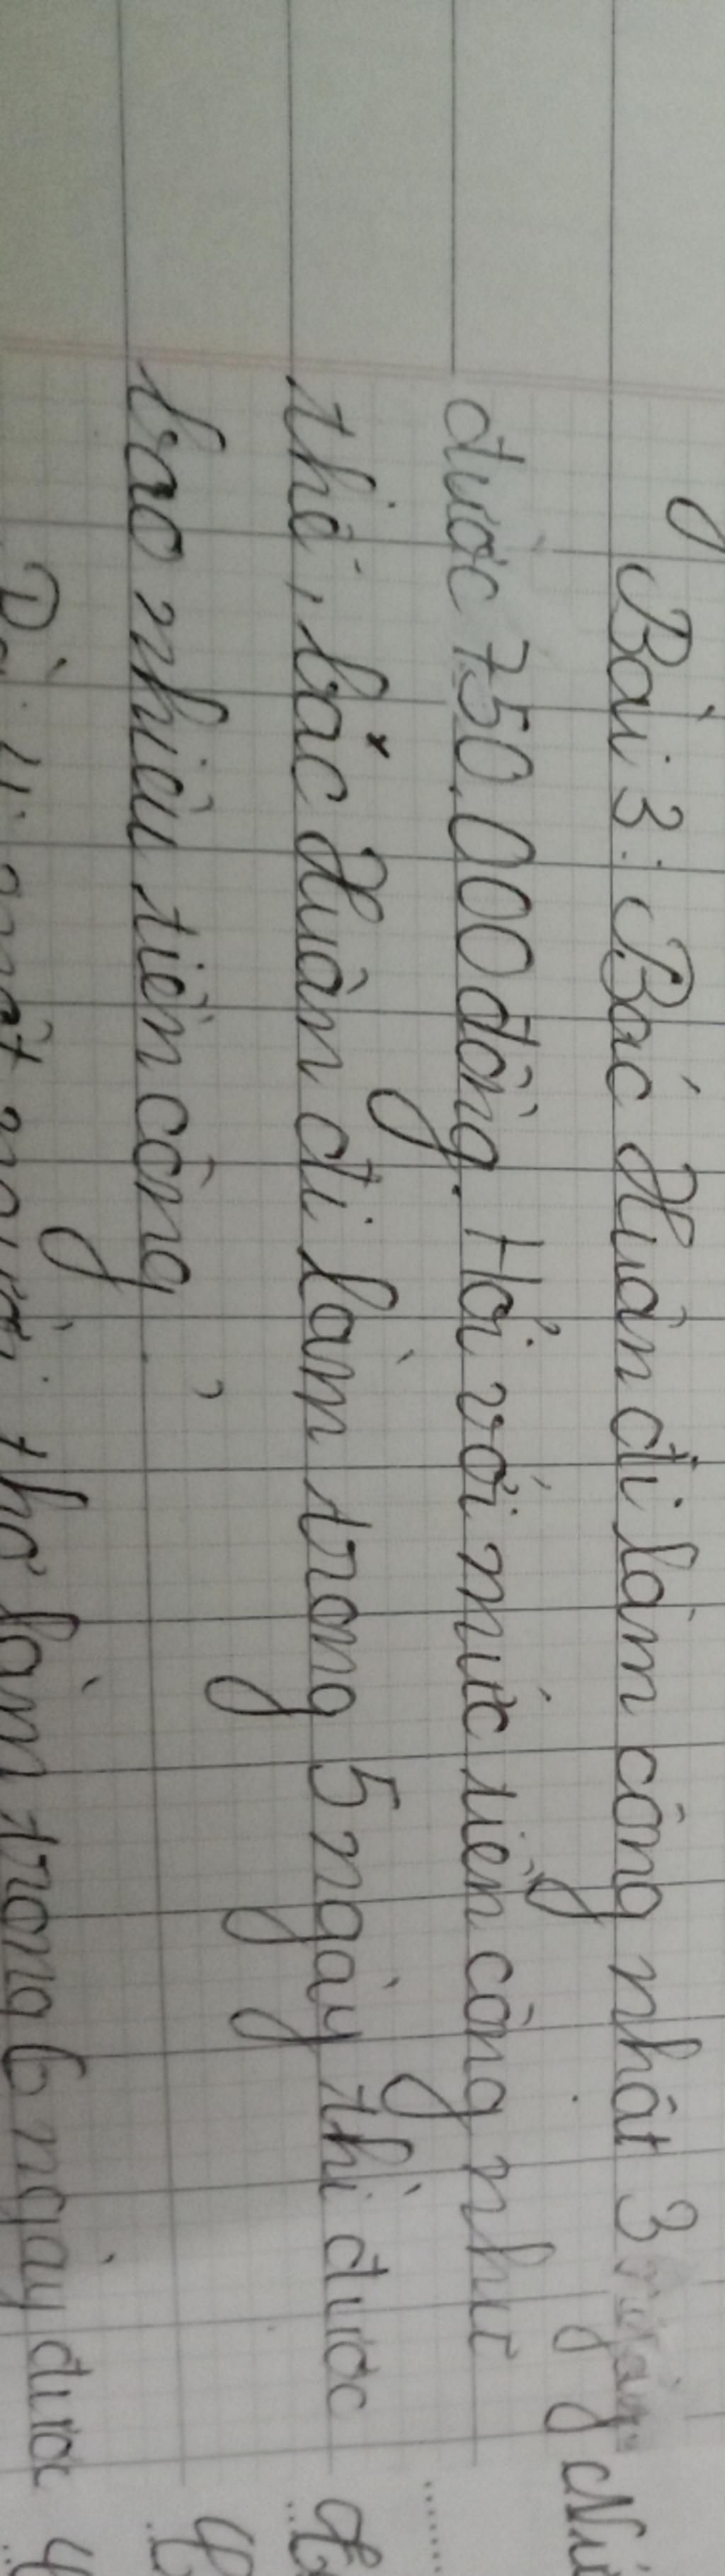 Bài 3: Bác Huân đi làm công nhật 3 ngày
được 750.000 đồng. Hỏi với mức tiền công như
thế, bác Huân đi làm trong 5 ngày thì được
bao nhiêu tiền công?
thợ làm trong 6 ngày được